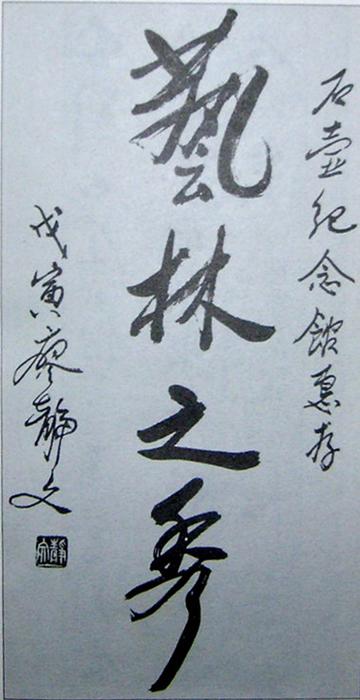 石壶纪念馆惠存
藝林之秀
戊寅廖静文
静文